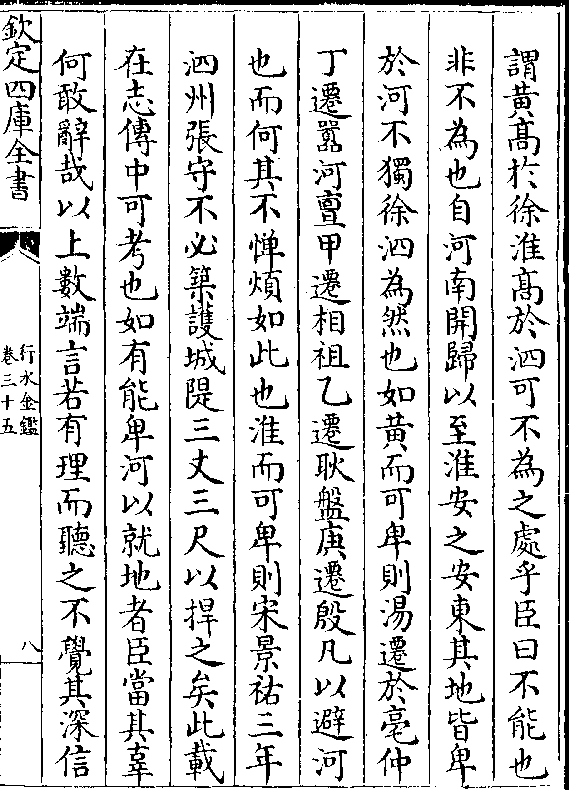 謂黃高於徐淮高於泗可不為之處乎臣曰不能也
非不為也自河南開歸以至淮安之安東其地皆卑
於河不獨徐泗為然也如黃而可卑則湯遷於亳仲
丁遷嚻河亶甲遷相祖乙遷耿盤庚遷殷凡以避河
也而何其不憚煩如此也淮而可卑則宋景祐三年
泗州張守不必築護城隄三丈三尺以捍之矣此載
在志傳中可考也如有能卑河以就地者臣當其辜
何敢辭哉以上數端言若有理而聽之不覺其深信
欽定四庫全書
行水金鑑
卷三十五
八